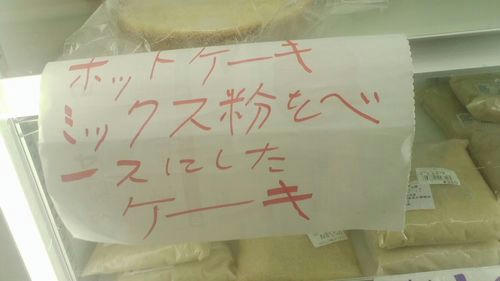 ホットケーキ
ミックス粉をベ
ースにした
ケーキ